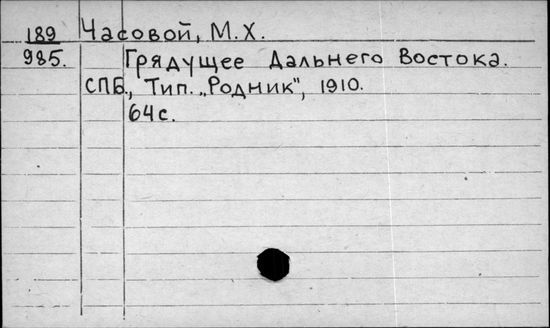 189 Часовой, М.Х.
985. Грядущее Дальнего Востока.
СПБ., Тип. „Родник", 1910.
64 с.